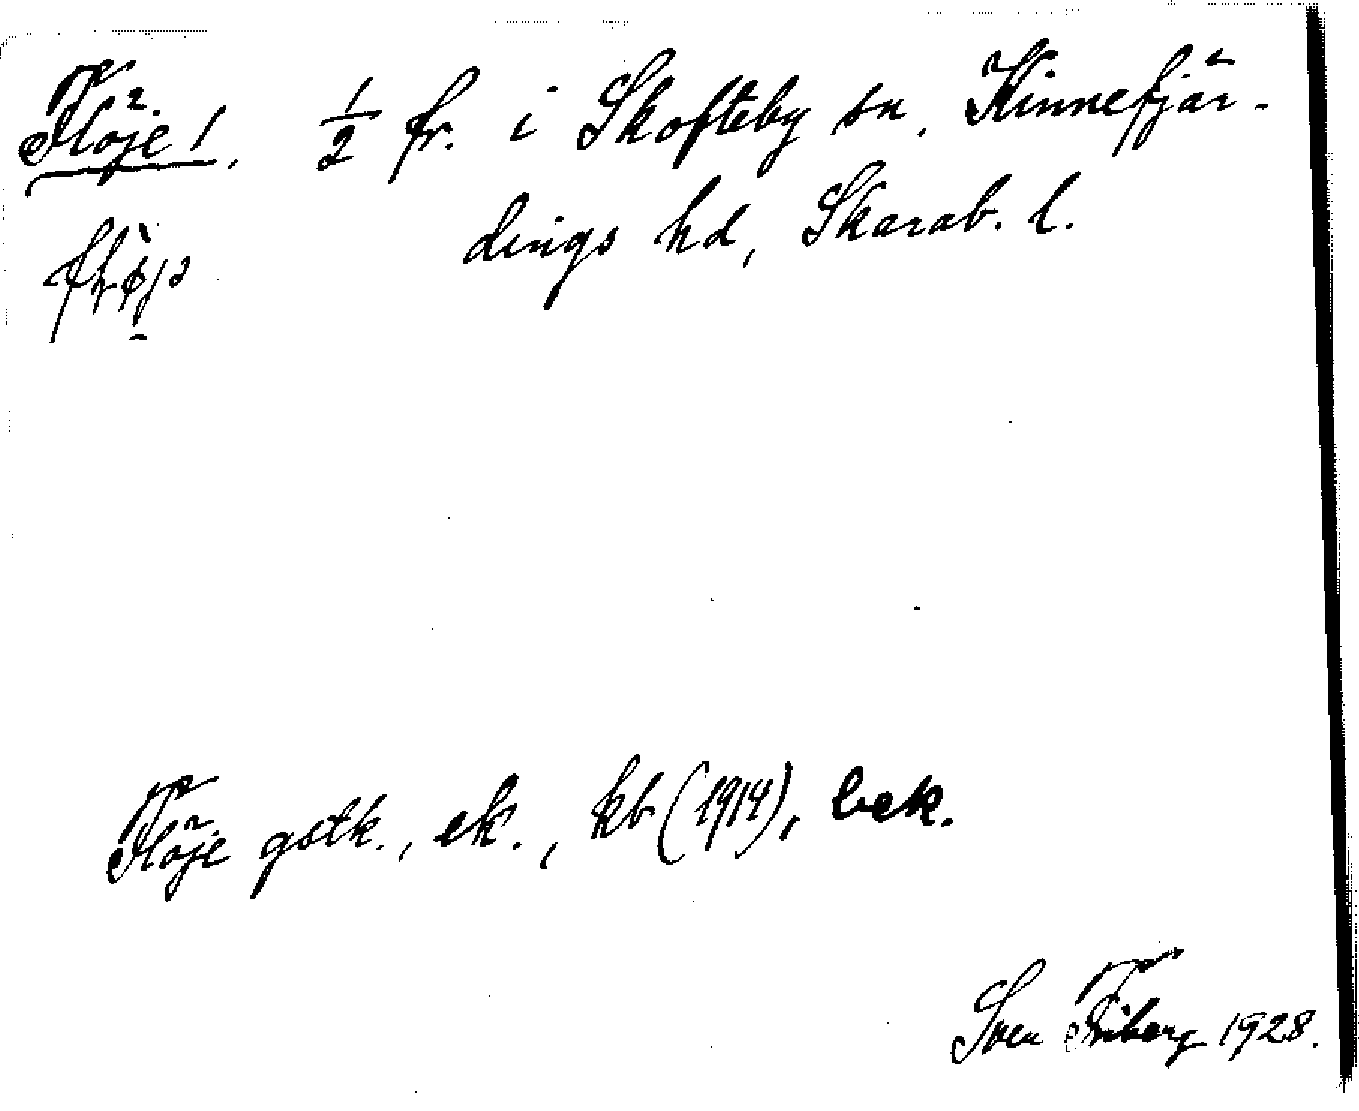 Flöje 1, 1/2 fr. i Skofteby sn, Kinnefjär-
dings hd, Skarab. l.
Flöje gstk., ek., kb (1914), bek.
Sven Friberg 1928.